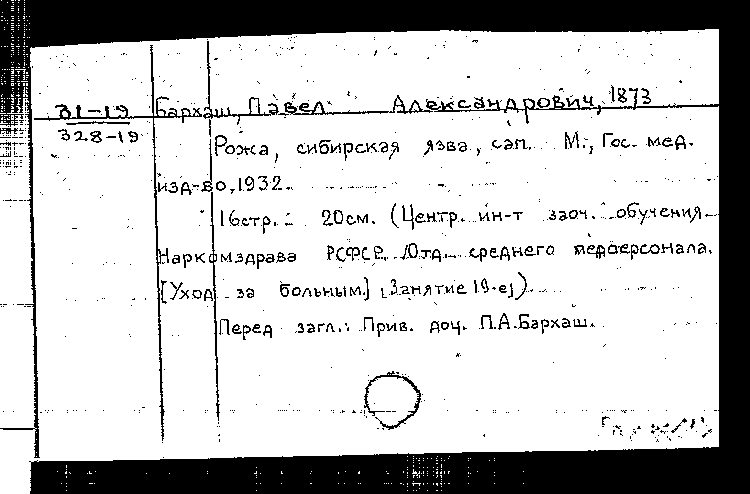 31-19 Бархаш, Павел Александрович, 1873
328-19
Рожа, сибирская язва, сап. М., Гос. мед.
изд-во, 1932.
16стр. 20см. (Центр. ин-т заоч. обучения
Наркомздрава РСФСР. Отд. среднего медперсонала.
[Уход за больным] Занятие 19-е)
Перед загл.: Прив. доц. П.А.Бархаш.